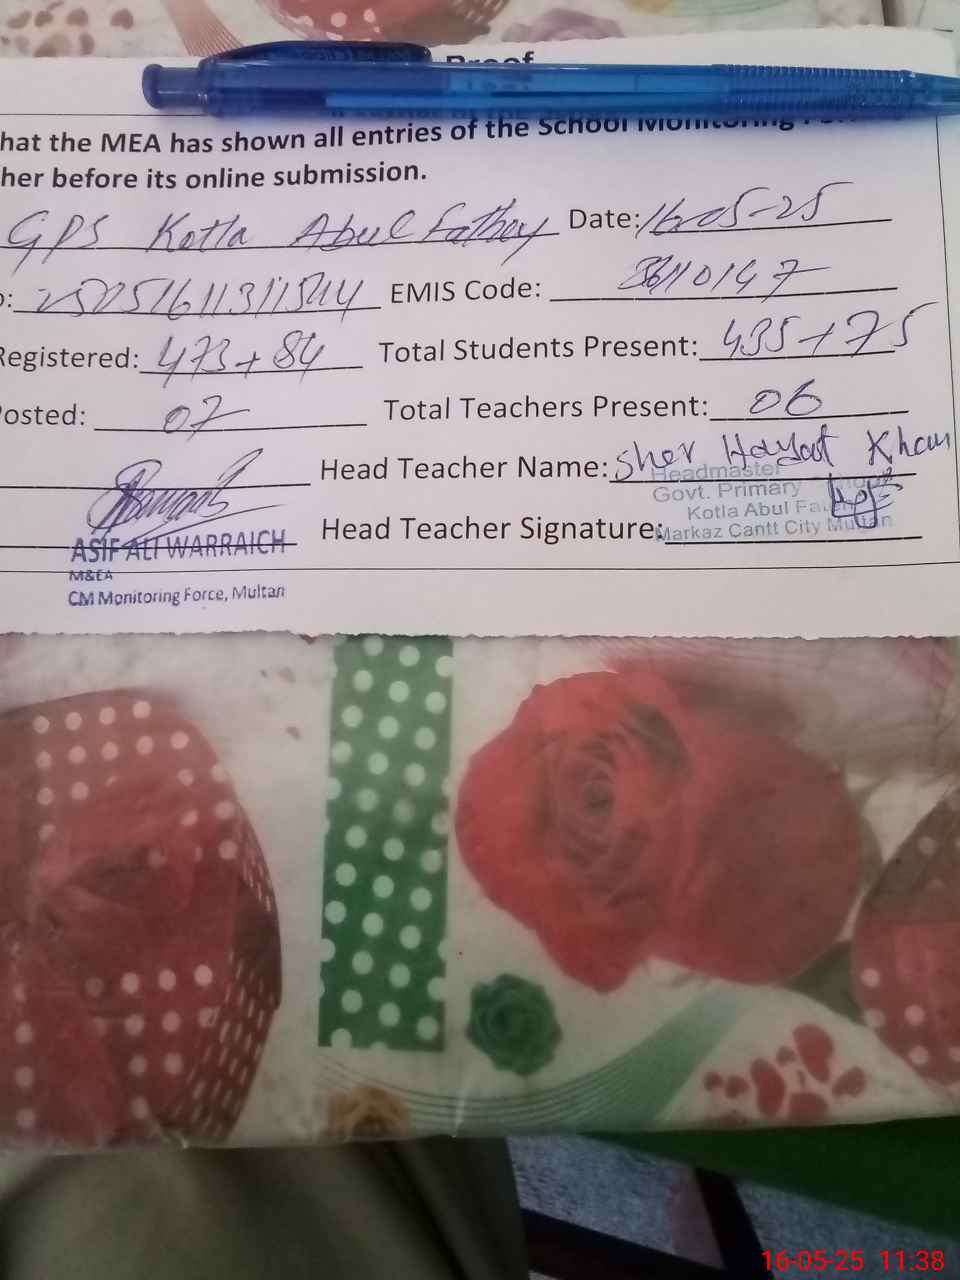 Proof
hat the MEA has shown all entries of the School Monitoring
her before its online submission.
GPS Kotla Abul Fathey Date: 16-05-25
: EMIS Code: 36110147
Registered: 473+84 Total Students Present: 435+75
osted: 07 Total Teachers Present: 06
Head Teacher Name: Sher Hayat Khan
Headmaster
Govt. Primary
Kotla Abul
Head Teacher Signature:
Markaz Cantt City Multan
ASIF ALI WARRAICH
M&EA
CM Monitoring Force, Multan
16-05-25 11:38